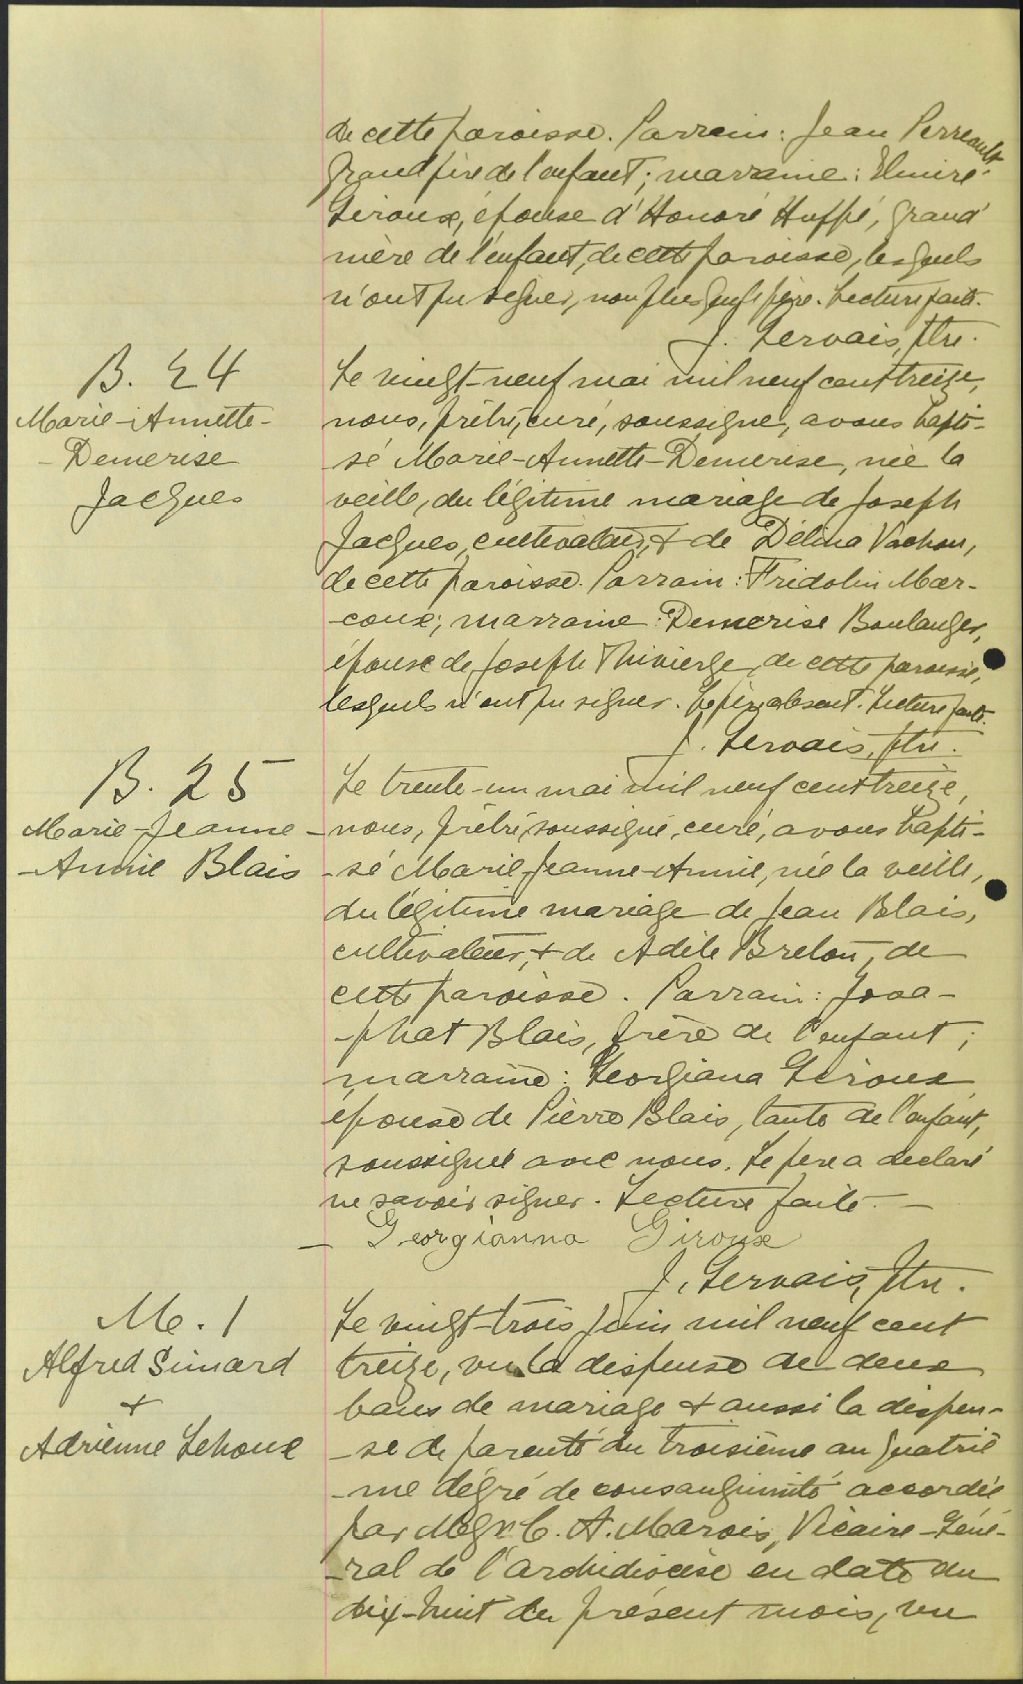 de cette paroisse. Parrain: Jean Perreault
grand père de l'enfant; marraine: Elmire
Giroux, épouse d'Honoré Huppé, grand'
mère de l'enfant, de cette paroisse, lesquels
n'ont pu signer, non plus que le père. Lecture faite.
J. Gervais, ptre.
B. 24
Marie-Annette-
-Demerise
Jacques
Le vingt-neuf mai mil neuf cent treize,
nous, prêtre, curé, soussigné, avons bapti-
-sé Marie-Annette-Demerise, née la
veille, du légitime mariage de Joseph
Jacques, cultivateur, + de Délina Vachon,
de cette paroisse. Parrain: Fridolin Mar-
-coux; marraine: Demerise Boulanger,
épouse de Joseph Thivierge, de cette paroisse,
lesquels n'ont pu signer. Le père absent. Lecture faite.
J. Gervais, ptre.
B. 25
Marie-Jeanne-
-Annie Blais
Le trente-un mai mil neuf cent treize,
nous, prêtre soussigné, curé, avons bapti-
-sé Marie-Jeanne-Annie, née la veille,
du légitime mariage de Jean Blais,
cultivateur, + de Adèle Breton, de
cette paroisse. Parrain: Josa-
-phat Blais, frère de l'enfant;
marraine: Georgiana Giroux
épouse de Pierre Blais, tante de l'enfant,
soussignée avec nous. Le père a déclaré
ne savoir signer. Lecture faite. —
— Georgianna Giroux
J. Gervais, ptre.
M. 1
Alfred Simard
+
Adrienne Lehoux
Le vingt-trois juin mil neuf cent
treize, vu la dispense de deux
bans de mariage + aussi la dispen-
-se de parenté du troisième au quatriè
-me dégré de consanguinité accordée
par Mgr C. A. Marois, Vicaire-Géné-
-ral de l'archidiocèse en date du
dix-huit du présent mois, vu